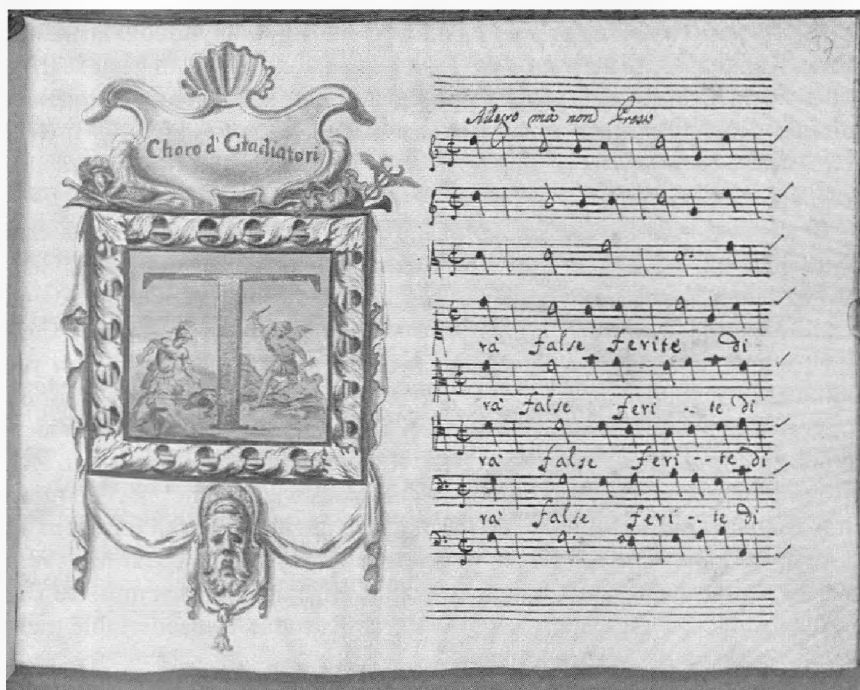 37
Choro d' Gladiatori
Allegro mà non Presto
T
rà false ferite di
rà false feri -- te di
rà false feri -- te di
rà false feri -- te di